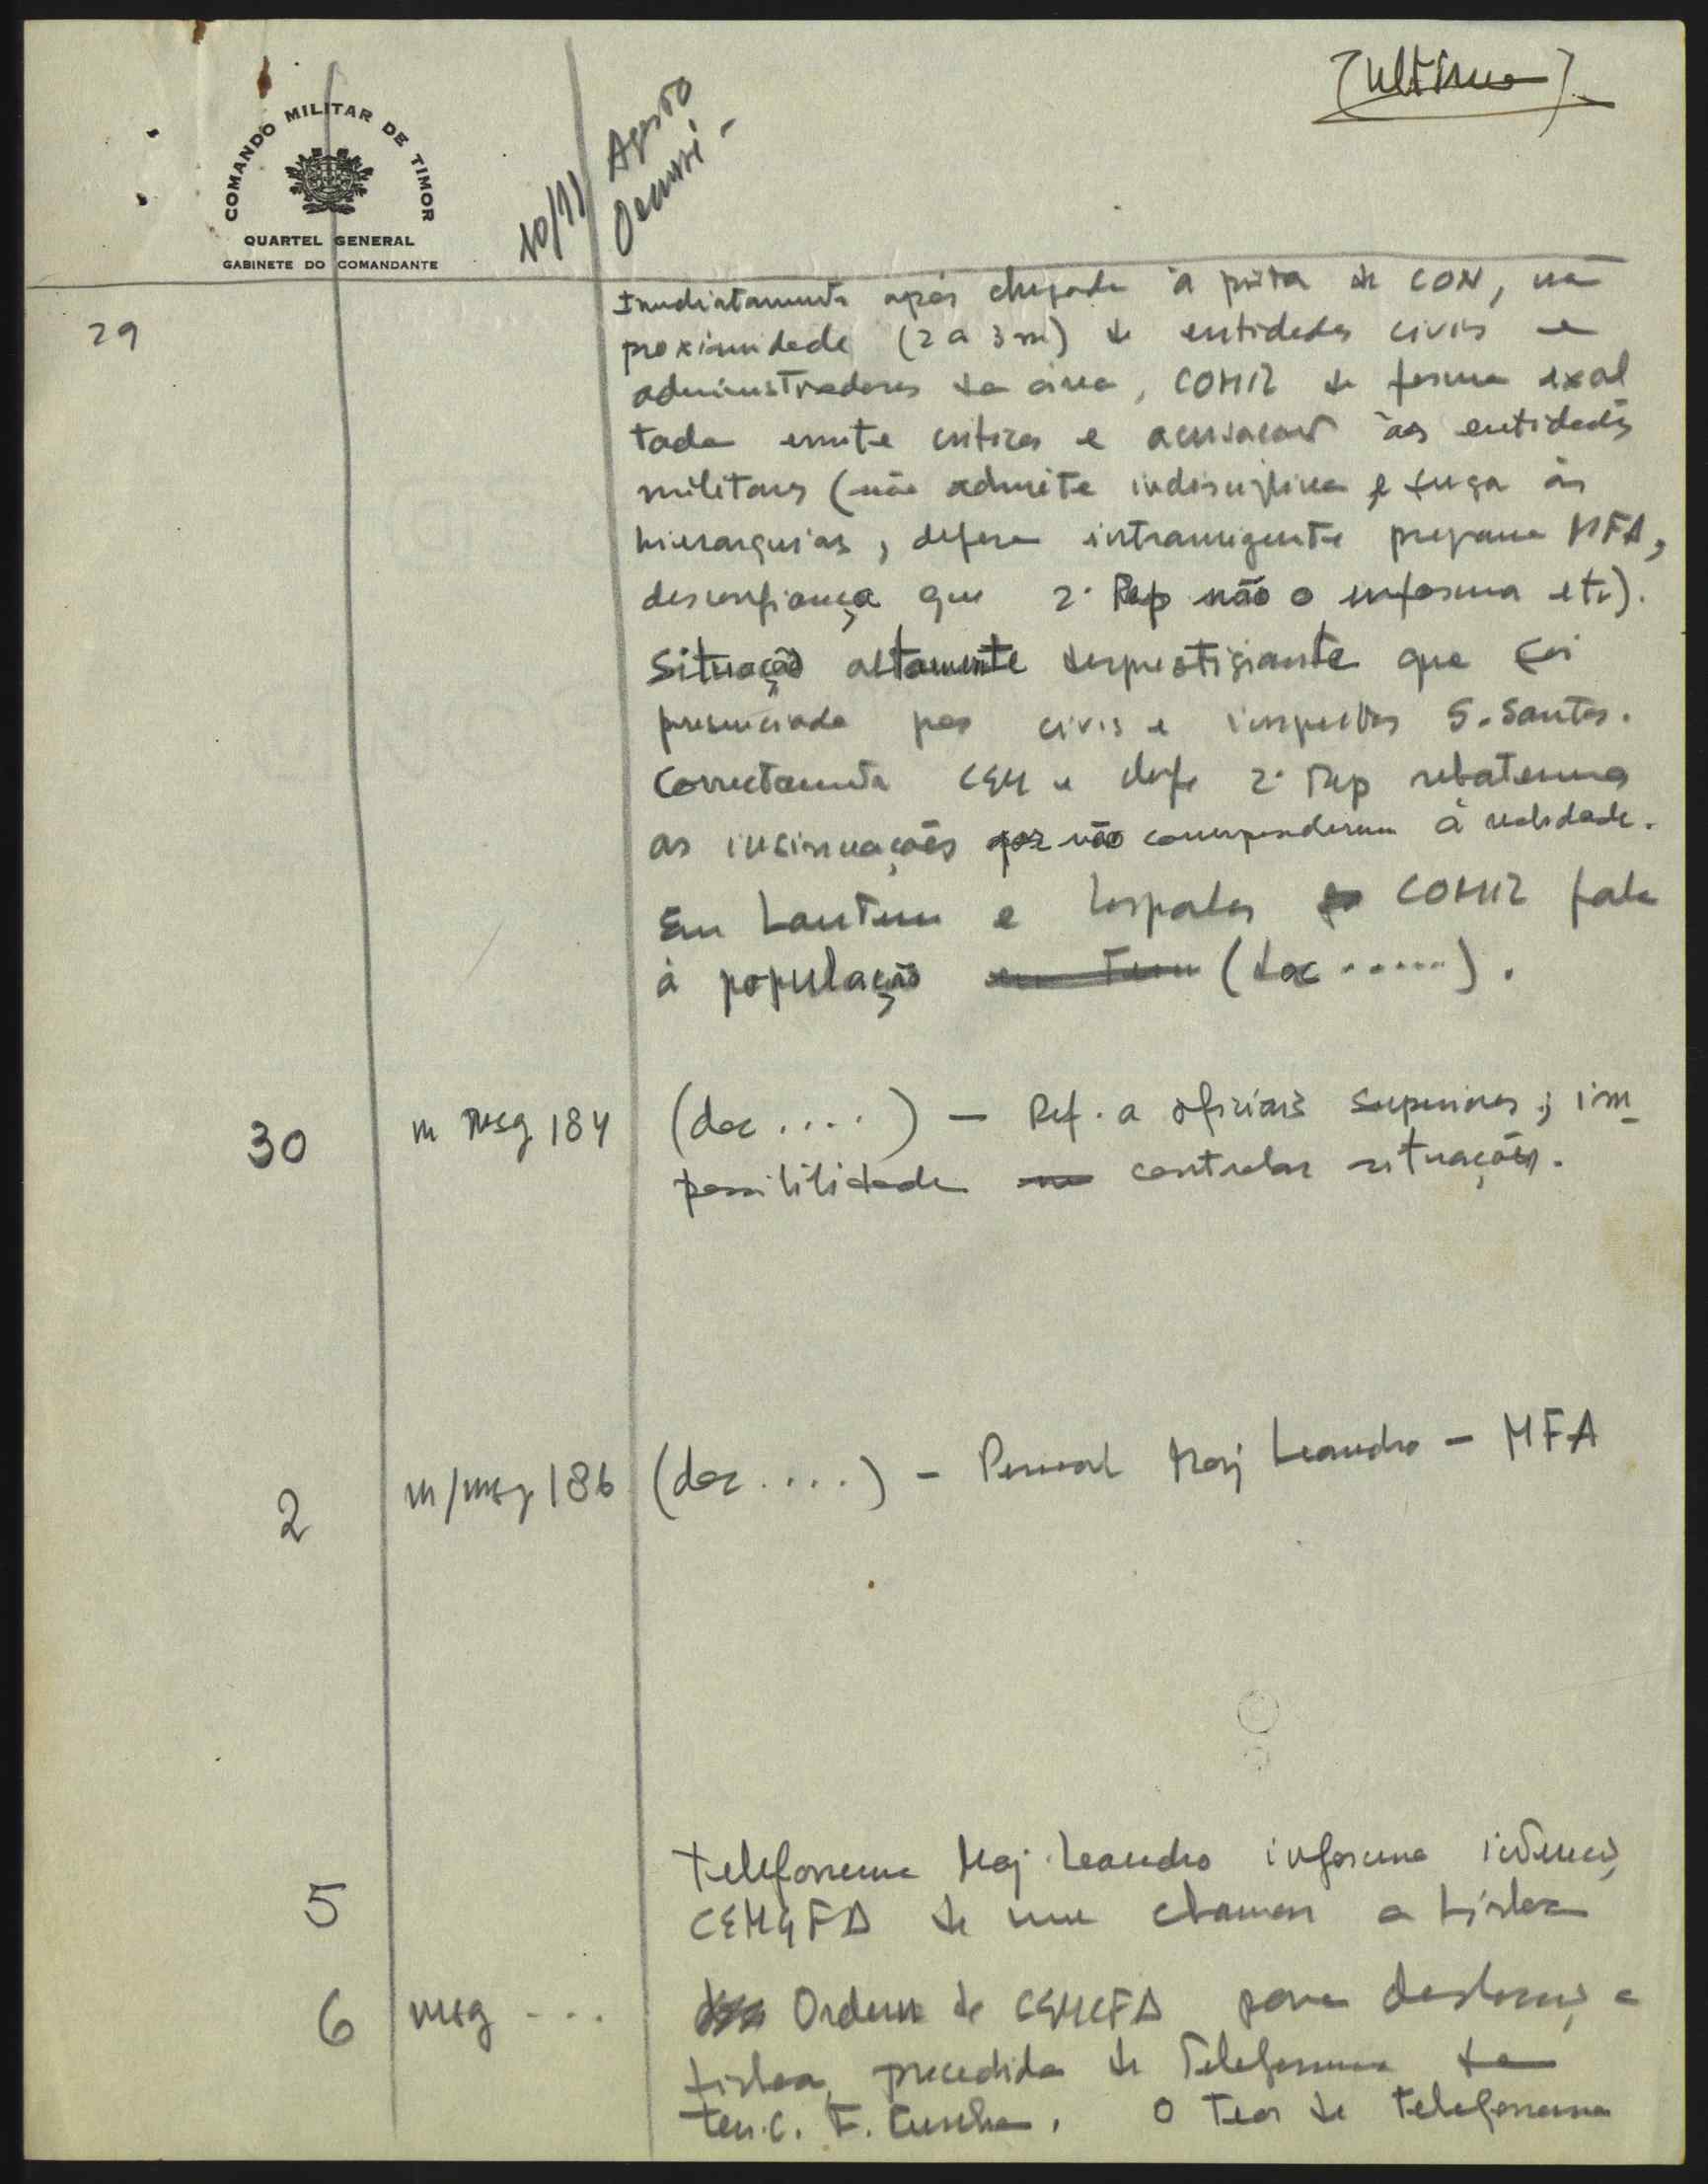 (Ultimo)
COMANDO MILITAR DE TIMOR
QUARTEL GENERAL
GABINETE DO COMANDANTE
10/11 Agosto
Oecussi -
29
Imediatamente após chegada à pista de CON, na
proximidade (2 a 3 m) de entidades civis e
administradores da área, COMIL de forma exal
tada emite criticas e acusações às entidades
militares (não admite indisciplina e fuga às
hierarquias, defesa intransigente programa MFA,
desconfiança que 2ª Rep não o informa etc).
Situação altamente desprestigiante que foi
presenciada por civis e inspector S. Santos.
Correctamente CEM e chefe 2ª Rep rebatemos
as insinuações por não corresponderem à realidade.
Em Lautem e Lospalos COMIL fala
à população (doc ......).
30
m msg 184
(doc ....) - Ref. a oficiais superiores; im-
possibilidade controlar situações.
2
m/msg 186
(doc ....) - Pessoal Maj Leandro - MFA
5
Telefonema Maj. Leandro informa intenção
CEMGFA de me chamar a Lisboa
6
msg ...
Ordem de CEMGFA para deslocação a
Lisboa, precedida de telefonema do
ten. C. F. Cunha. O teor do telefonema